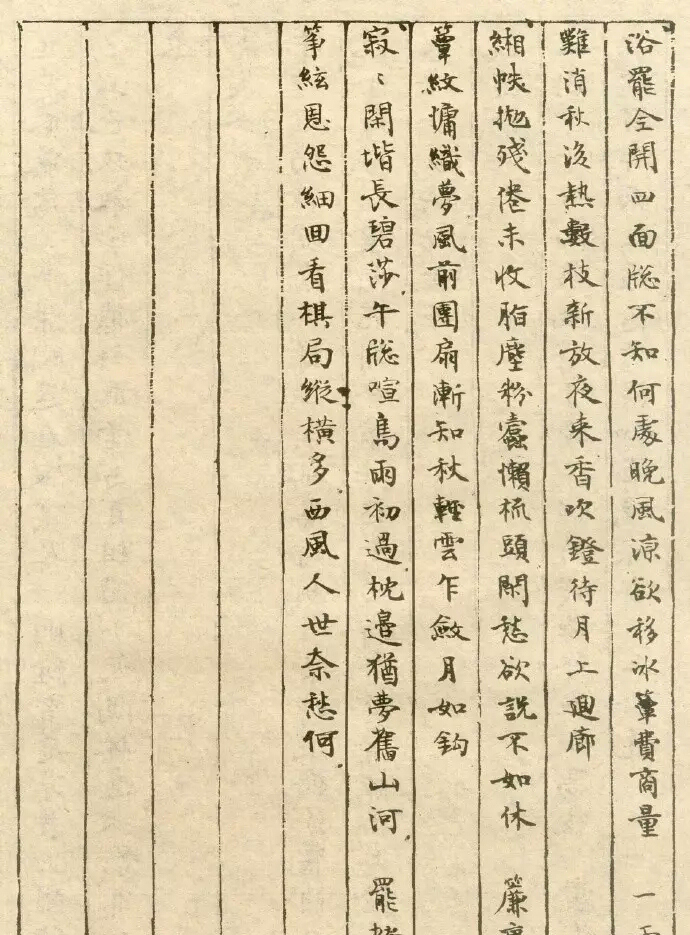 浴罷全開四面牕不知何處晚風涼欲移冰簟費商量 一
難消秋後熱數枝新放夜來香吹鐙待月上迴廊
緗帙拋殘倦未收脂塵粉蠹懶梳頭閑愁欲説不如休 簾
簟紋慵織夢風前團扇漸知秋輕雲乍斂月如鈎
寂〻閑堦長碧莎午牕喧鳥雨初過枕邊猶夢舊山河 罷
筝絃恩怨細回看棋局縱橫多西風人世奈愁何